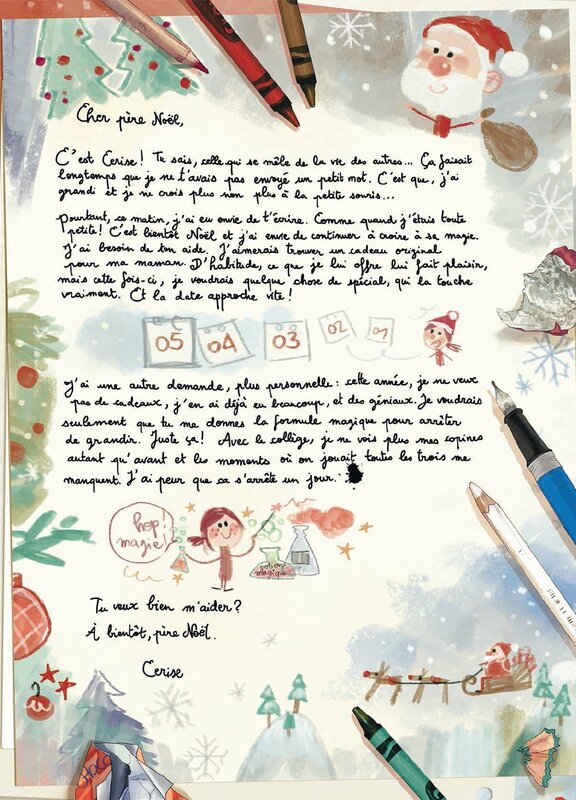 Cher père Noël,
C'est Cerise! Tu sais, celle qui se mêle de la vie des autres... Ça faisait
longtemps que je ne t'avais pas envoyé un petit mot. C'est que, j'ai
grandi et je ne crois plus non plus à la petite souris...
Pourtant, ce matin, j'ai eu envie de t'écrire. Comme quand j'étais toute
petite! C'est bientôt Noël et j'ai envie de continuer à croire à sa magie.
J'ai besoin de ton aide. J'aimerais trouver un cadeau original
pour ma maman. D'habitude, ce que je lui offre lui fait plaisir,
mais cette fois-ci, je voudrais quelque chose de spécial, qui la touche
vraiment. Et la date approche vite!
05 04 03 02 01
J'ai une autre demande, plus personnelle: cette année, je ne veux
pas de cadeaux, j'en ai déjà eu beaucoup, et des géniaux. Je voudrais
seulement que tu me donnes la formule magique pour arrêter
de grandir. Juste ça! Avec le collège, je ne vois plus mes copines
autant qu'avant et les moments où on jouait toutes les trois me
manquent. J'ai peur que ça s'arrête un jour.
hop!
magie!
potion
magique
Tu veux bien m'aider?
À bientôt, père Noël.
Cerise
CHOCO